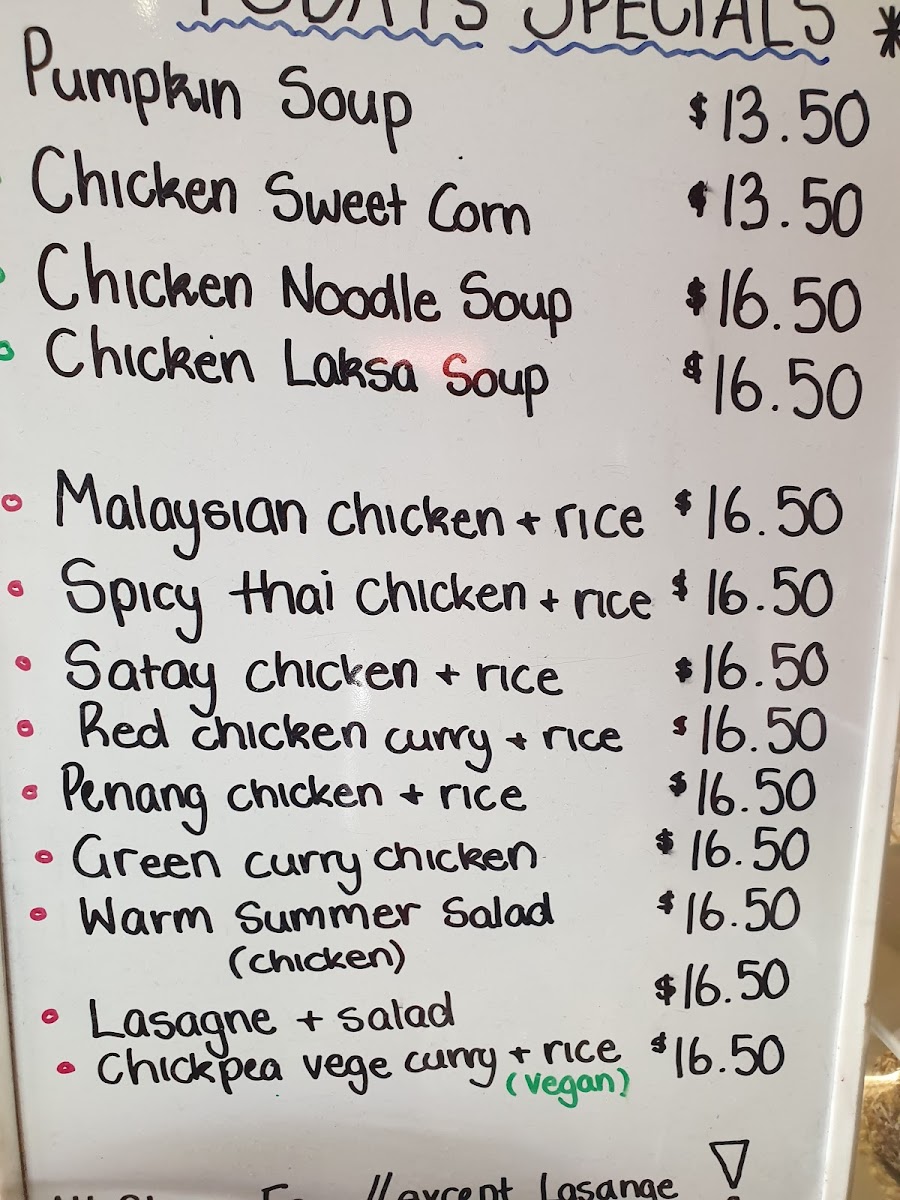 TODAY'S SPECIALS *
Pumpkin Soup $13.50
Chicken Sweet Corn $13.50
Chicken Noodle Soup $16.50
Chicken Laksa Soup $16.50
Malaysian chicken + rice $16.50
Spicy thai chicken + rice $16.50
Satay chicken + rice $16.50
Red chicken curry + rice $16.50
Penang chicken + rice $16.50
Green curry chicken $16.50
Warm Summer Salad $16.50
(chicken)
Lasagne + salad $16.50
Chickpea vege curry + rice $16.50
(vegan)
except Lasange